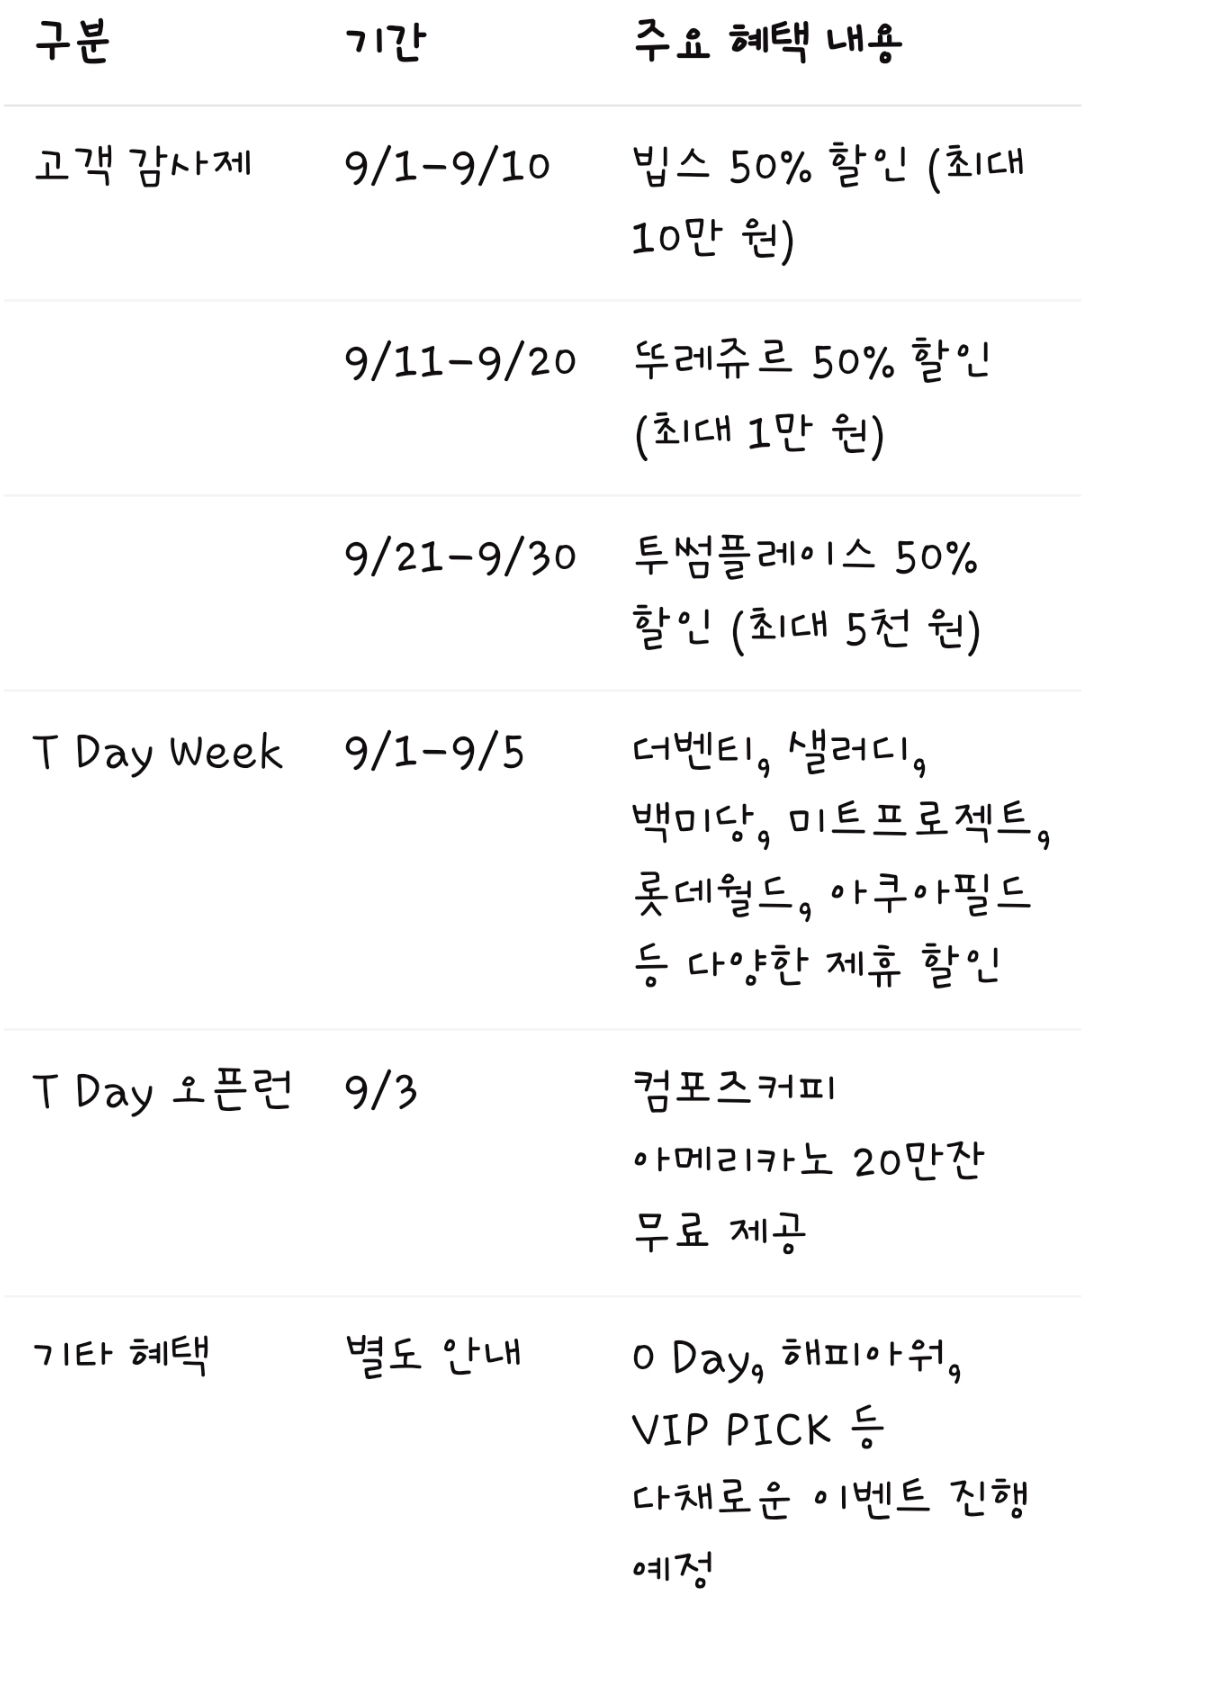 구분 기간 주요 혜택 내용
고객 감사제 9/1-9/10 빕스 50% 할인 (최대
10만 원)
9/11-9/20 뚜레쥬르 50% 할인
(최대 1만 원)
9/21-9/30 투썸플레이스 50%
할인 (최대 5천 원)
T Day Week 9/1-9/5 더벤티, 샐러디,
백미당, 미트프로젝트,
롯데월드, 아쿠아필드
등 다양한 제휴 할인
T Day 오픈런 9/3 컴포즈커피
아메리카노 20만잔
무료 제공
기타 혜택 별도 안내 0 Day, 해피아워,
VIP PICK 등
다채로운 이벤트 진행
예정